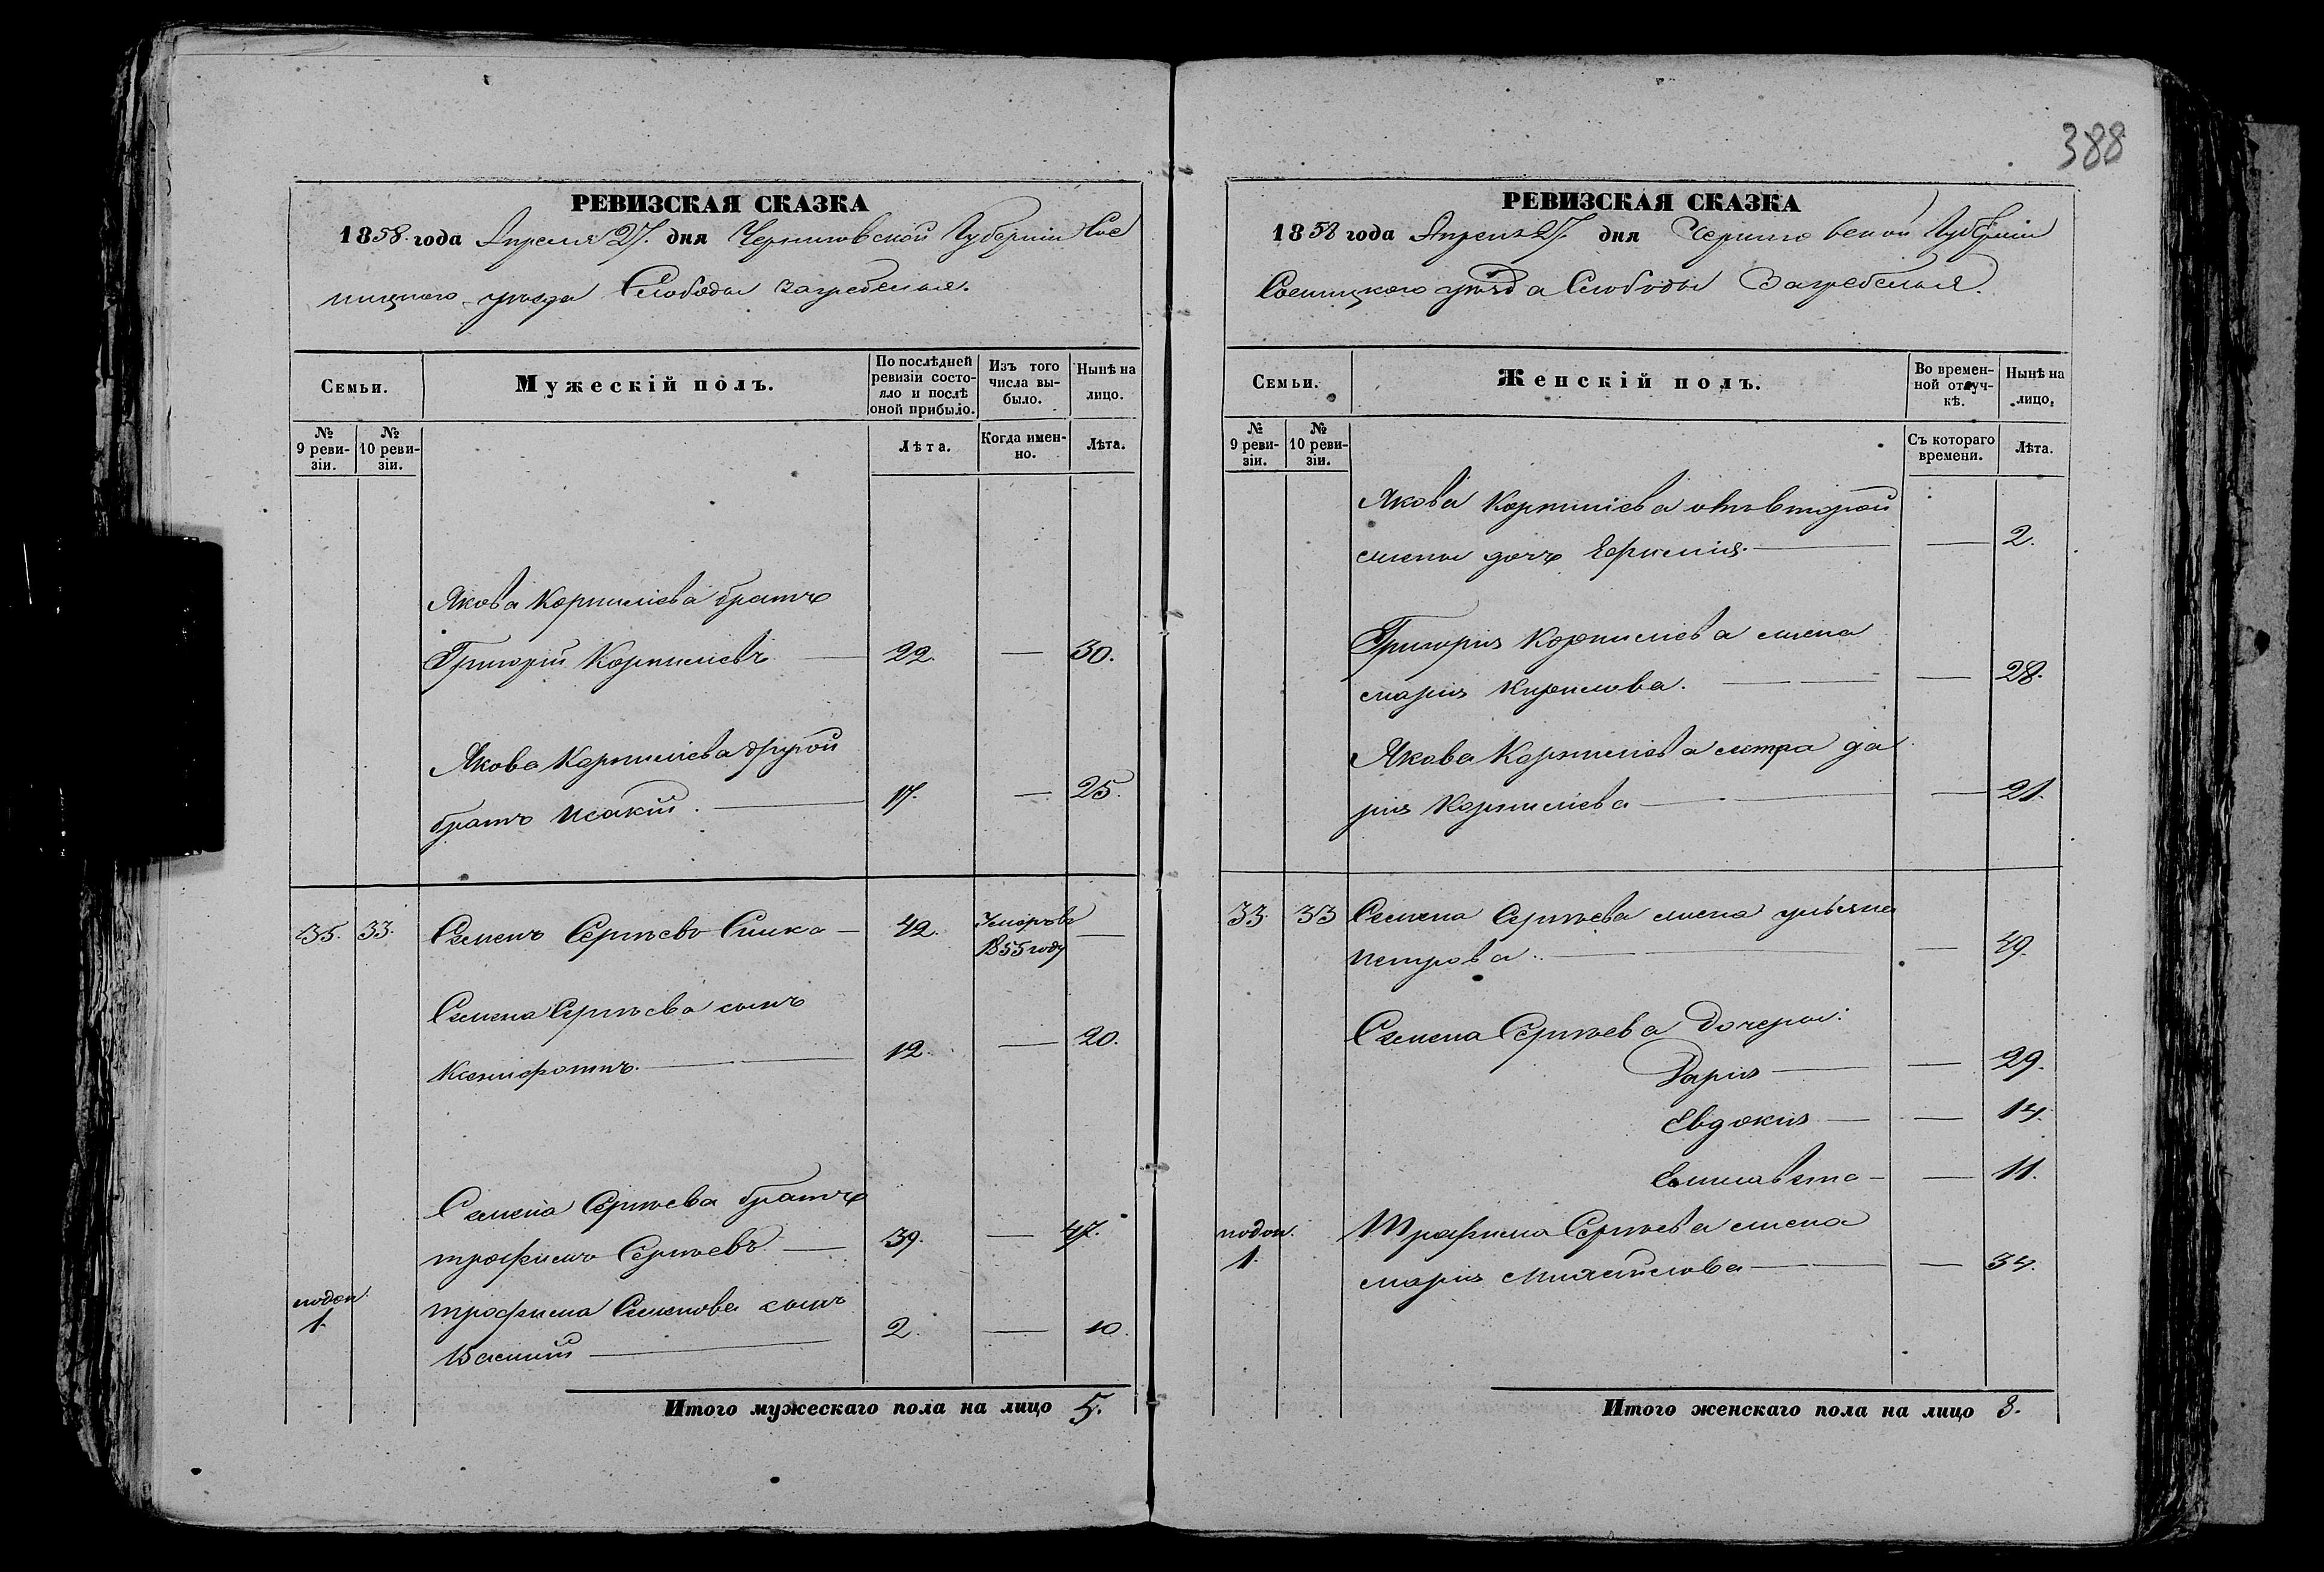 388
РЕВИЗСКАЯ СКАЗКА
1858 года Апреля 27. дня Черниговской Губернии Сос
ницкого уезда Слободы Загребелья.
Семьи.
Мужескій полъ.
По послѣдней ревизіи состояло и послѣ оной прибыло.
Изъ того числа выбыло.
Нынѣ на лицо.
№ 9 ревизіи.
№ 10 ревизіи.
Лѣта.
Когда именно.
Лѣта.
Якова Корнилиева братъ
Григорій Корнилиевъ — 22. — 30.
Якова Корнилиева другой
братъ Исакій. — 17. — 25.
35. 33. Семенъ Сергѣевъ — 42. Умеръ въ 1855 году —
Семена Сергѣева сынъ
Ксенофонтъ. — 12. — 20.
Семена Сергѣева братъ
трофимъ Сергѣевъ — 39. — 47.
1. трофима Семенова сынъ
Василій — 2. — 10.
Итого мужескаго пола на лицо 5.
РЕВИЗСКАЯ СКАЗКА
1858 года Апреля 27. дня Черниговской Губерніи
Сосницкого уѣзда Слободы Загребелья.
Семьи.
Женскій полъ.
Во временной отлучкѣ.
Нынѣ на лицо.
№ 9 ревизіи.
№ 10 ревизіи.
Съ котораго времени.
Лѣта.
Якова Корнилиева отъ второй
жены дочь — — 2.
Григорія Корнилиева жена
марія Кирилова. — — 28.
Якова Корнилиева сестра да
рія Корнилиева — — 21.
33. 33 Семена Сергѣева жена ульяна
петрова. — — 49.
Семена Сергѣева Дочери:
Дарія — — 29.
Евдокия — — 14.
Елисавета — — 11.
1. Трофима Сергѣева жена
марія — — 34.
Итого женскаго пола на лицо 8.